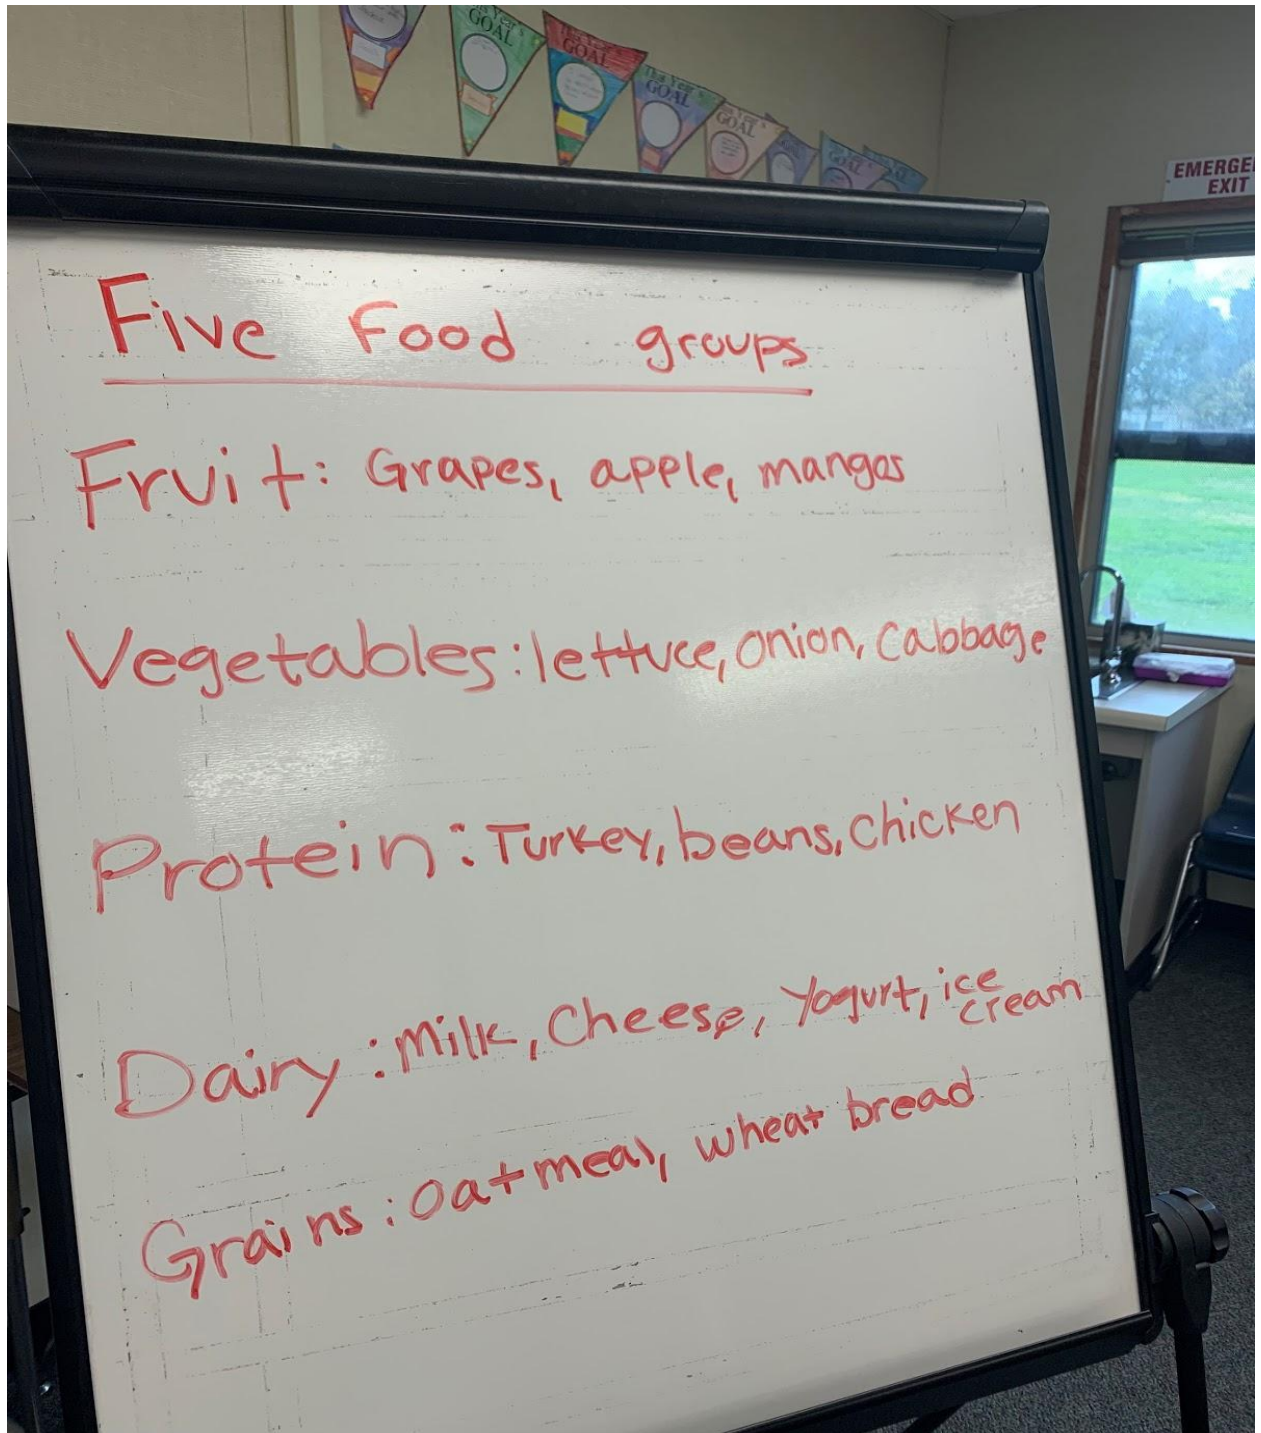 This Year's
GOAL
This Year's
GOAL
This Year's
GOAL
This Year's
GOAL
GOAL
EXIT
Five Food groups
Fruit: Grapes, apple, mangos
Vegetables: lettuce, onion, Cabbage
Protein: Turkey, beans, chicken
Dairy: Milk, Cheese, Yogurt, ice
cream
Grains: oatmeal, wheat bread